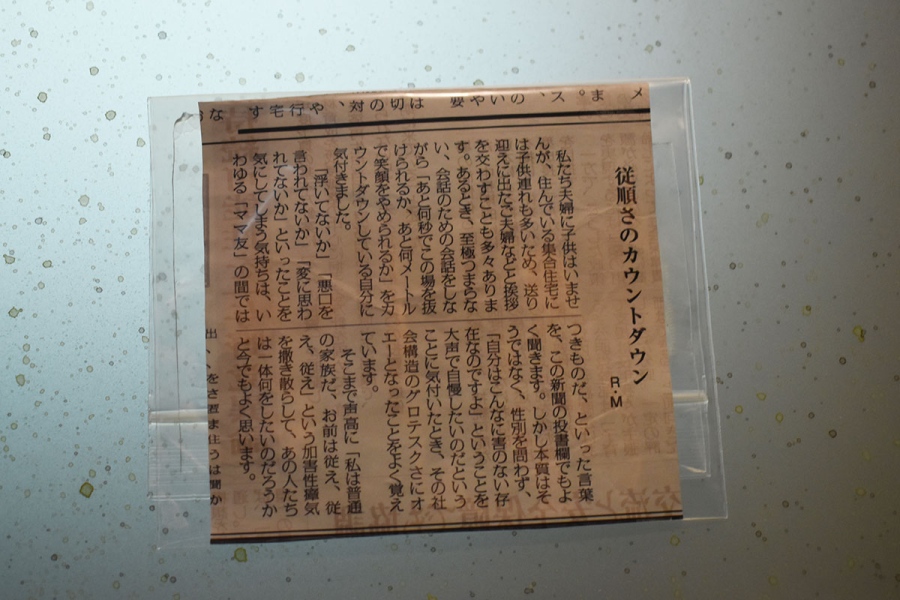 従順さのカウントダウン
R・M
私たち夫婦に子供はいませ
んが、住んでいる集合住宅に
は子供連れも多いため、送り
迎えに出たご夫婦などと挨拶
を交わすことも多々ありま
す。あるとき、至極つまらな
い、会話のための会話をしな
がら「あと何秒でこの場を抜
けられるか、あと何メートル
で笑顔をやめられるか」をカ
ウントダウンしている自分に
気付きました。
「浮いてないか」「悪口を
言われてないか」「変に思わ
れてないか」といったことを
気にしてしまう気持ちは、い
わゆる「ママ友」の間では
つきものだ、といった言葉
を、この新聞の投書欄でもよ
く聞きます。しかし本質はそ
うではなく、性別を問わず、
「自分はこんなに害のない存
在なのですよ」ということを
大声で自慢したいのだという
ことに気付いたとき、その社
会構造のグロテスクさにオ
エーとなったことをよく覚え
ています。
そこまで声高に「私は普通
の家族だ、お前は従え、従
え、従え」という加害性瘴気
を撒き散らして、あの人たち
は一体何をしたいのだろうか
と今でもよく思います。